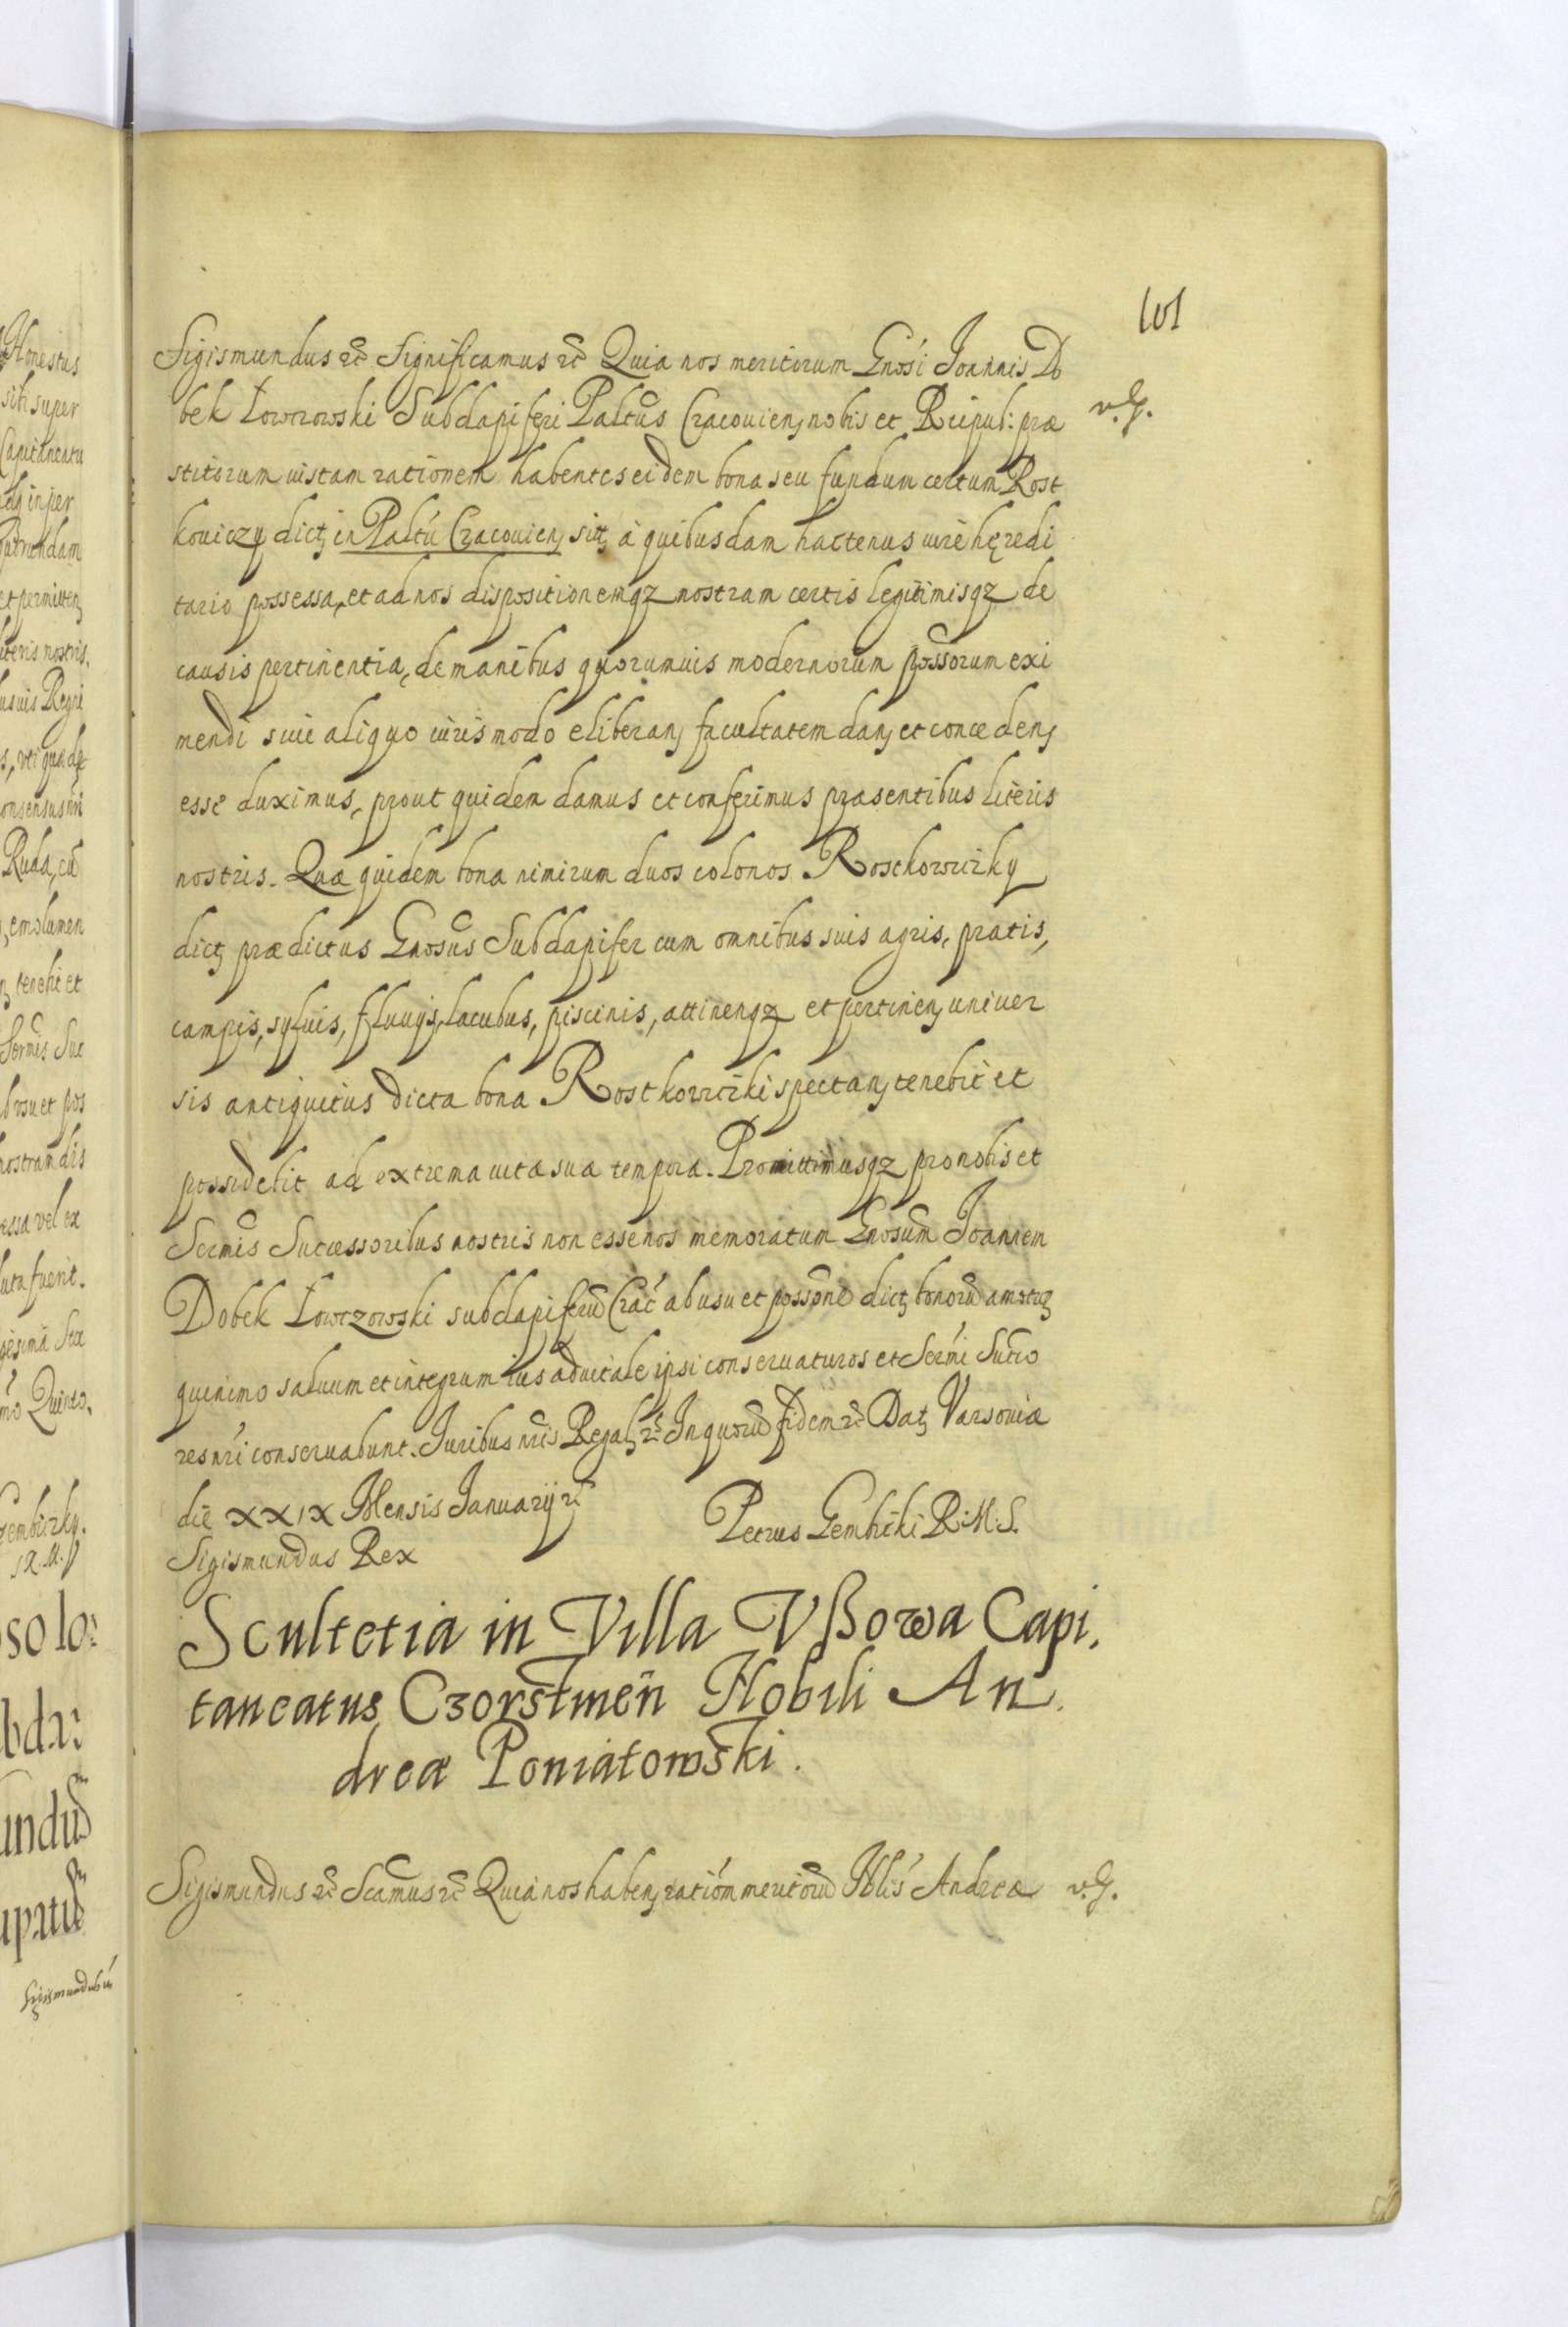 101
Sigismundus etc Significamus etc Quia nos meritorum Gnosi Joannis Do
bek Łowczowski Subdapiferi Paltus Cracouien nobis et Reipub: præ
v. G.
stitorum iustam rationem habentes eidem bona seu fundum certum Rost
kouiczy dict in Paltu Cracouien sit à quibusdam hactenus iure hęredi
tario possessa, et ad nos dispositionemqz nostram certis legitimisqz de
causis pertinentia, de manibus quorumuis modernorum possorum exi
mendi siue aliquo iuris modo eliberan facultatem dan et conceden
esse duximus, prout quidem damus et conferimus præsentibus literis
nostris. Quæ quidem bona nimirum duos colonos Rostkowiczky
dict prædictus Gnosus Subdapifer cum omnibus suis agris, pratis,
campis, syluis, fluuijs, lacubus, piscinis, attinenqz et pertinen uniuer
sis antiquitus dicta bona Rostkowiczki spectan tenebit et
possidebit ad extrema uitæ suæ tempora. Promittimusqz pro nobis et
Sermis Successoribus nostris non esse nos memoratum Gnosum Joannem
Dobek Łowczowski subdapiferu Crac ab usu et possone dict bonoru amotur
quinimo saluum et integrum ius aduitale ipsi conseruaturos et Sermi Succo
res nri conseruabunt. Juribus nris Regal etc In quoru fidem etc Dat Varsouiæ
die XXIX Mensis Januarij etc
Petrus Gembicki R: M: S.
Sigismundus Rex
Scultetia in Villa Vßowa Capi,
taneatus Czorstinen Nobili An
dreæ Poniatowski.
Sigismundus etc Scamus etc Quia nos haben rationm meritoru Nblis Andreæ
v. G.